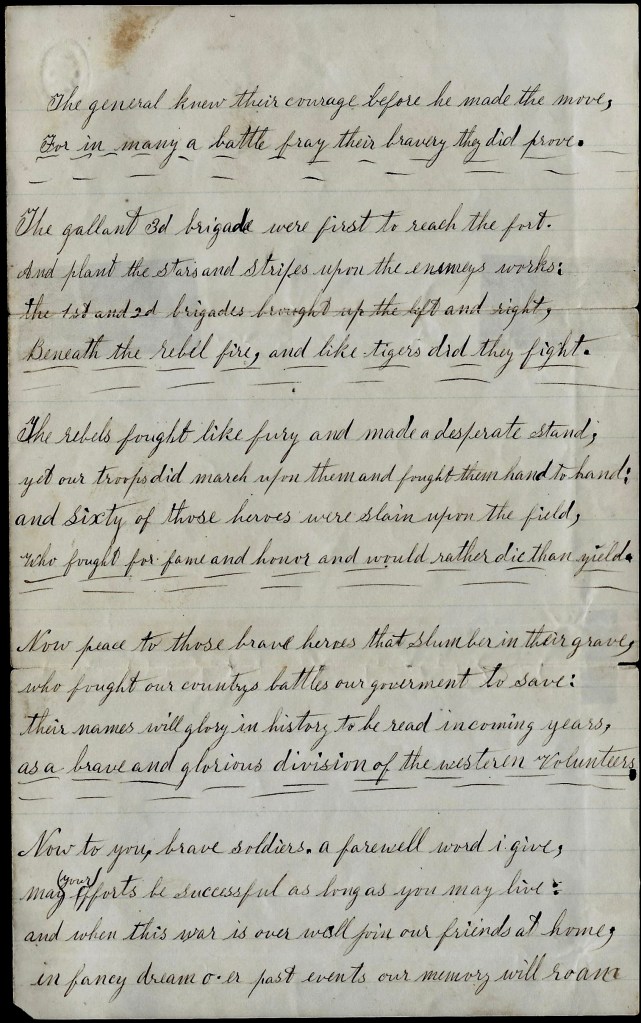 The general knew their courage before he made the move,
For in many a battle fray their bravery they did prove.
The gallant 3d brigade were first to reach the fort.
And plant the stars and stripes upon the enemeys works:
the 1st and 2d brigades brought up the left and right,
Beneath the rebel fire, and like tigers did they fight.
The rebels fought like fury and made a desperate stand;
yet our troops did march upon them and fought them hand to hand:
and sixty of those heroes were slain upon the field,
Who fought for fame and honor and would rather die than yield.
Now peace to those brave heroes that slumber in their grave,
who fought our countrys battles our goverment to save:
their names will glory in history to be read in coming years,
as a brave and glorious division of the westeren Volunteers.
Now to you, brave soldiers. a farewell word i give,
may (your) efforts be successful as long as you may live:
and when this war is over well join our friends at home,
in fancy dream o.er past events our memory will roam